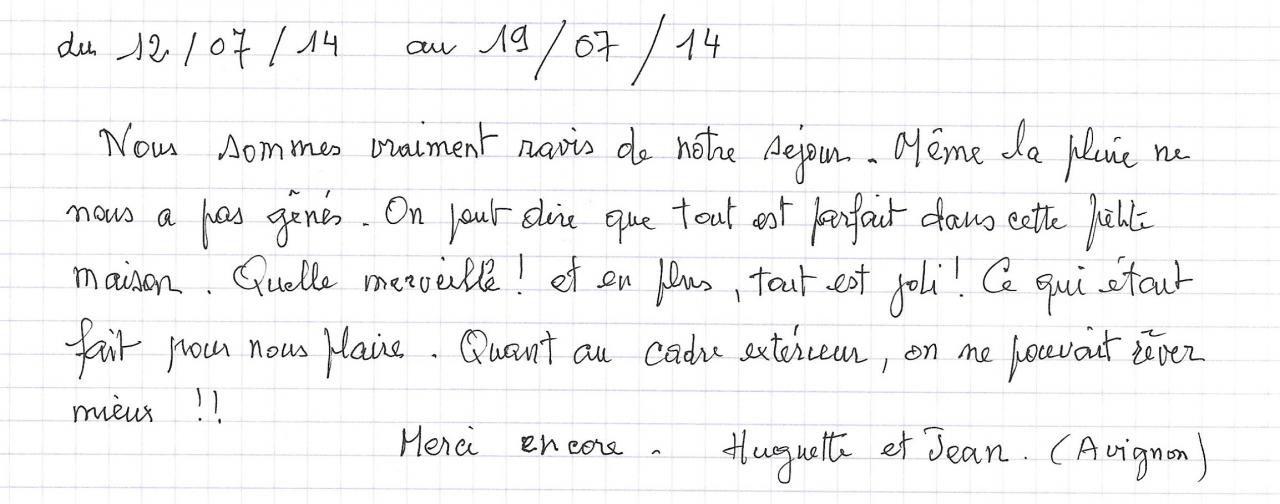 du 12/07/14 au 19/07/14
Nous sommes vraiment ravis de nôtre séjour. Même la pluie ne
nous a pas gênés. On peut dire que tout est parfait dans cette petite
maison. Quelle merveille ! et en plus, tout est joli ! Ce qui était
fait pour nous plaire. Quant au cadre extérieur, on ne pouvait rêver
mieux !!
Merci encore. Huguette et Jean. (Avignon)